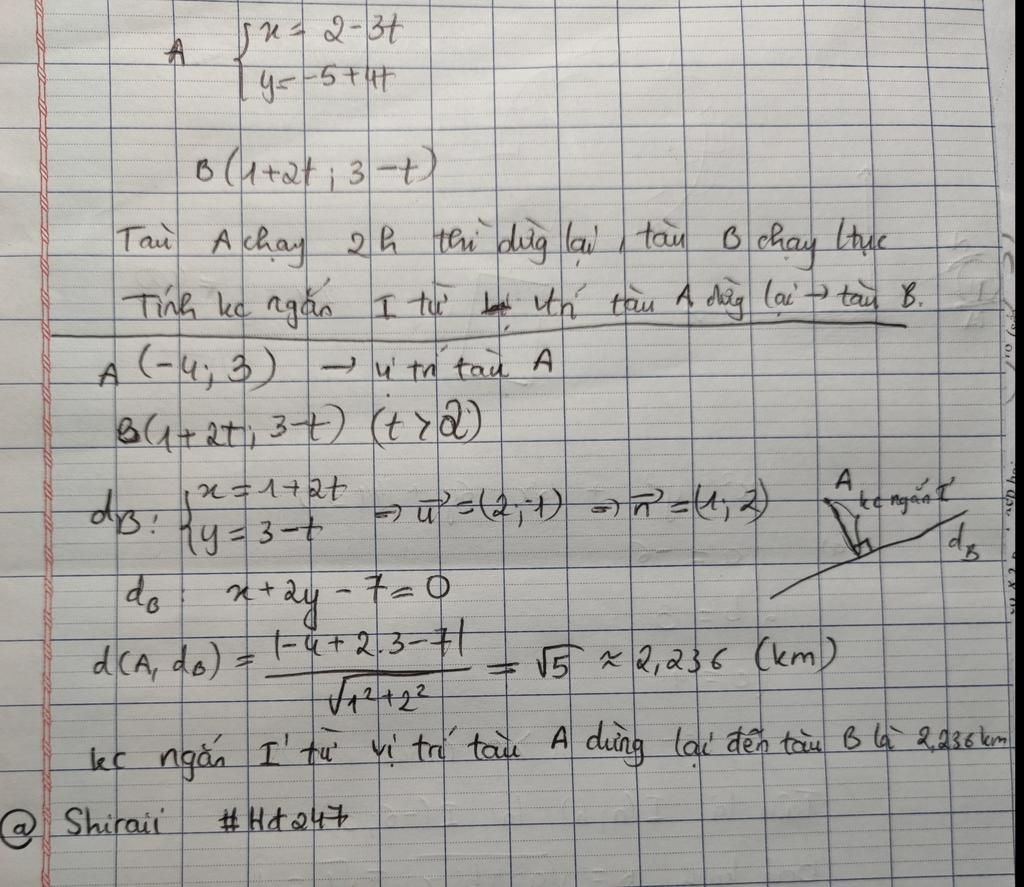 A { x = 2 - 3t
y = -5 + 4t
B (1+2t ; 3-t)
Tàu A chạy 2h thì dừg lại, tàu B chạy ltục
Tính kc ngắn I từ vtrí tàu A dừg lại → tàu B.
A (-4; 3) → vị trí tàu A
B(1+2t; 3-t) (t > 2)
dB: { x = 1+2t
y = 3-t
⇒ u⃗ = (2; -1) ⇒ n⃗ = (1; 2)
A
kc ngắn I
dB
dB: x + 2y - 7 = 0
d(A, dB) = |-4 + 2.3 - 7| / √1²+2² = √5 ≈ 2,236 (km)
kc ngắn I từ vị trí tàu A dừng lại đến tàu B là 2,236km
@ Shiraii #Hd247